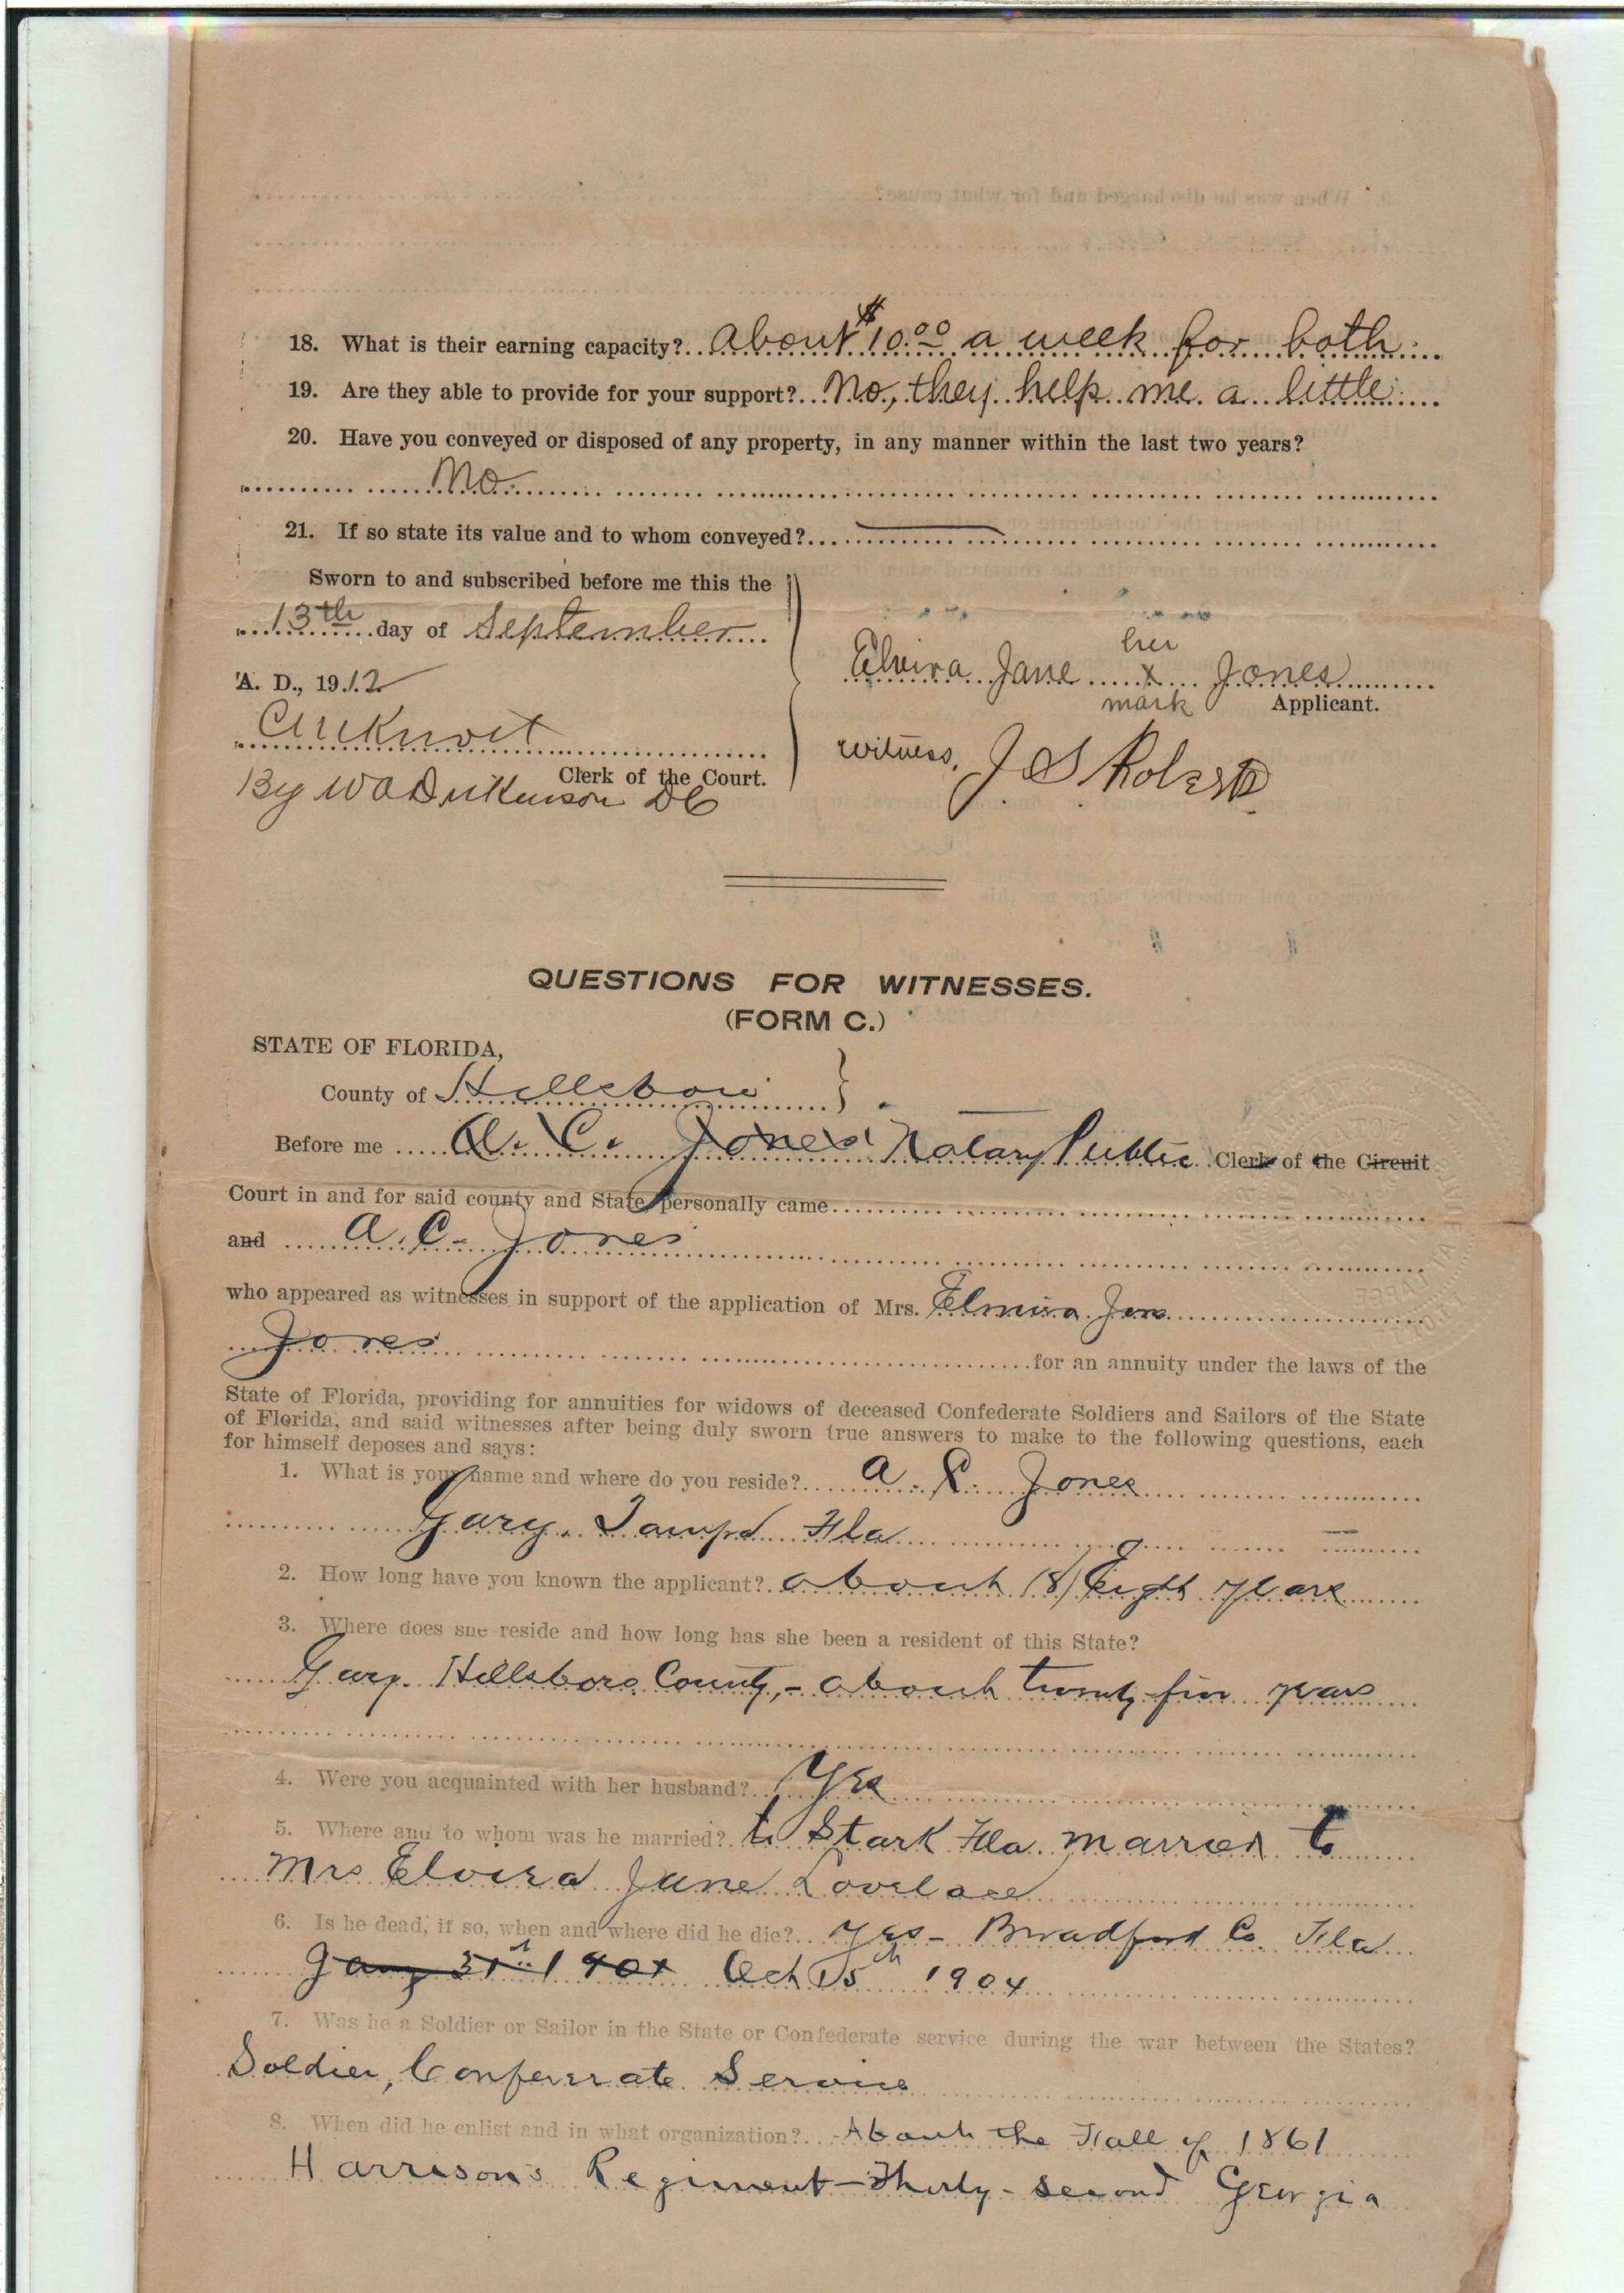 18. What is their earning capacity? About $10.00 a week for both.
19. Are they able to provide for your support? No, they help me a little.
20. Have you conveyed or disposed of any property, in any manner within the last two years?
No
21. If so state its value and to whom conveyed?
Sworn to and subscribed before me this the
13th day of September
A. D., 1912
Clerk of the Court.
By W A Dickenson DC
her
Elvira Jane x Jones
mark Applicant.
witness, J S Roberts
QUESTIONS FOR WITNESSES.
(FORM C.)
STATE OF FLORIDA,
County of Hillsboro
Before me A. C. Jones Notary Public Clerk of the Circuit
Court in and for said county and State, personally came
and A. C. Jones
who appeared as witnesses in support of the application of Mrs. Elmira Jane
Jones for an annuity under the laws of the
State of Florida, providing for annuities for widows of deceased Confederate Soldiers and Sailors of the State
of Florida, and said witnesses after being duly sworn true answers to make to the following questions, each
for himself deposes and says:
1. What is your name and where do you reside? A. C. Jones
Gary. Tampa Fla
2. How long have you known the applicant? about (8) Eight years
3. Where does she reside and how long has she been a resident of this State?
Gary. Hillsboro County, - about twenty five years
4. Were you acquainted with her husband? Yes
5. Where and to whom was he married? Stark Fla. married to
Mrs Elvira Jane Lovelace
6. Is he dead, if so, when and where did he die? Yes - Bradford Co. Fla
Jany 31st 1901 Oct 15th 1904
7. Was he a Soldier or Sailor in the State or Confederate service during the war between the States?
Soldier, Confererate Service
8. When did he enlist and in what organization? About the Fall of 1861
Harrison's Regiment - Thirty - second Georgia